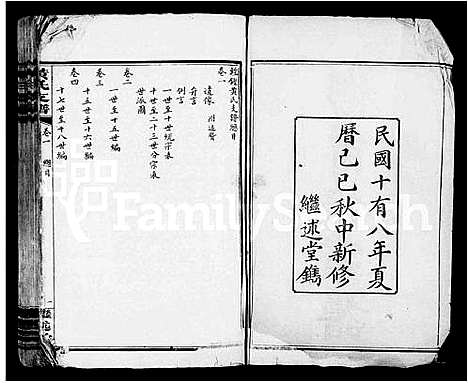 民國十有八年夏
曆己巳秋中新修
繼述堂鐫
黄氏支譜總目
卷一
遺像 附遺贊
弁言
例言
一世至十世統宗表
十世至二十三世分宗表
世派圖
卷二
一世至十五世編
卷三
十五世至十六世編
卷四
十七世至十八世編
黄氏支譜
卷一 總目
一
FamilySearch